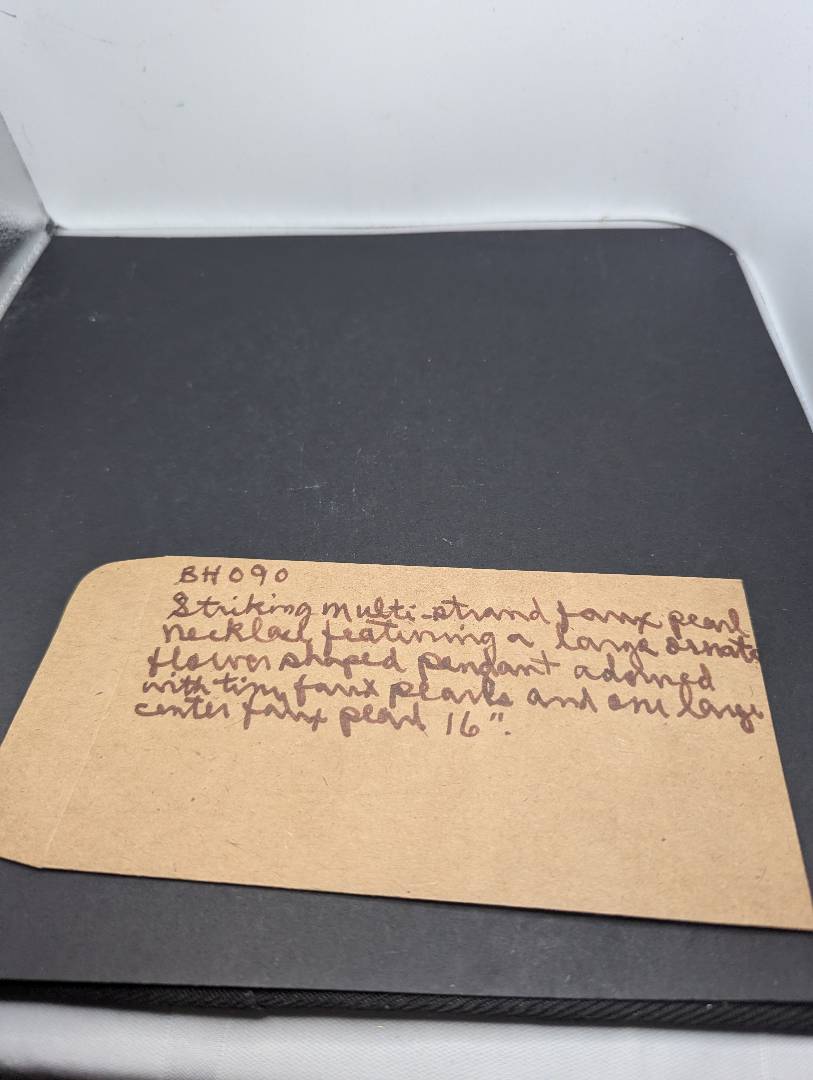 BH090
Striking multi-strand faux pearl
necklace featuring a large ornate
flower shaped pendant adorned
with tiny faux pearls and one large
center faux pearl 16".